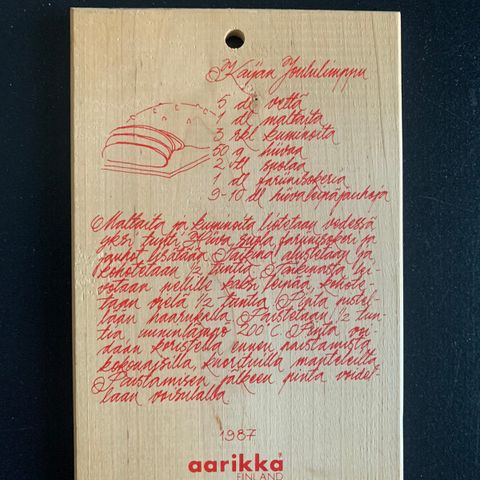 Kaijan Joululimppu
5 dl vettä
1 dl maltaita
3 rkl kuminoita
50 g hiivaa
2 tl suolaa
1 dl fariinisokeria
9-10 dl hiivaleipäjauhoja
Maltaita ja kuminoita liotetaan vedessä
yksi tunti. Hiiva suola fariinisokeri ja
jauhot lisätään Taikina alustetaan ja
kohotetaan 1/2 tuntia Taikinasta lei-
votaan pellille kaksi leipää, kohote-
taan vielä 1/2 tuntia Pinta pistel-
lään haarukalla Paistetaan 1/2 tun-
tia uuninlämpö 200°C Pinta voi-
daan koristella ennen paistamista
kokonaisilla, kuorituilla manteleilla
Paistamisen jälkeen pinta voidel-
laan voisulalla
1987
aarikka
FINLAND